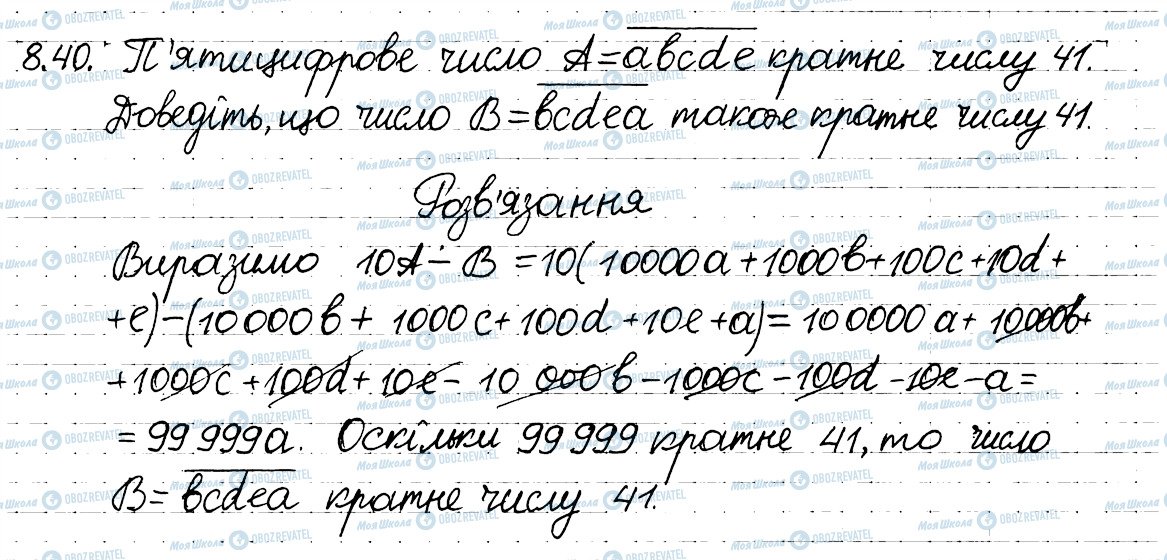 8.40. П'ятицифрове число A=a̅b̅c̅d̅e̅ кратне числу 41.
Доведіть, що число B=b̅c̅d̅e̅a̅ також кратне числу 41.
Розв'язання
Виразимо 10A - B = 10(10000a+1000b+100c+10d+
+e)-(10000b+ 1000c+100d+10e+a)=100000a+10000b+
+1000c+100d+10e- 10 000b-1000c-100d-10e-a=
= 99 999a. Оскільки 99 999 кратне 41, то число
B= b̅c̅d̅e̅a̅ кратне числу 41.